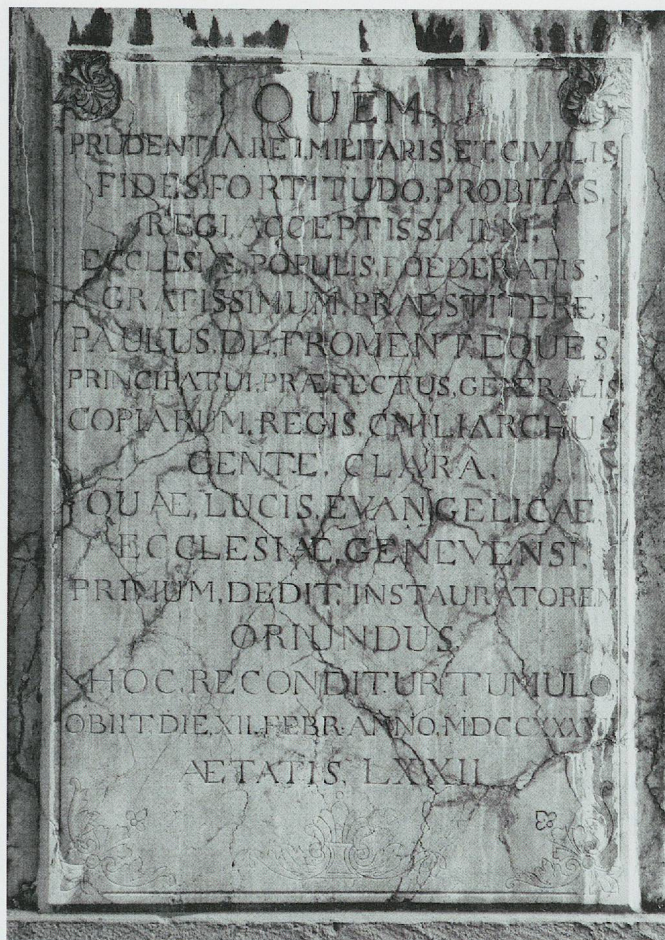 QUEM,
PRUDENTIA.REI.MILITARIS.ET.CIVILIS
FIDES.FORTITUDO.PROBITAS,
REGI.ACCEPTISSIMUM,
ECCLESIÆ.POPULIS.FOEDERATIS,
GRATISSIMUM.PRÆSTITERE,
PAULUS.DE.FROMENT.EQUES.
PRINCIPATUI.PRÆFECTUS.GENERALIS
COPIARUM.REGIS.CHILIARCHUS
GENTE.CLARA.
QUÆ.LUCIS.EVANGELICÆ.
ECCLESIÆ.GENEVENSI.
PRIMUM.DEDIT.INSTAURATOREM
ORIUNDUS.
HOC.RECONDITUR.TUMULO.
OBIIT.DIE.XII.FEBR.ANNO.
ÆTATIS.LXXII